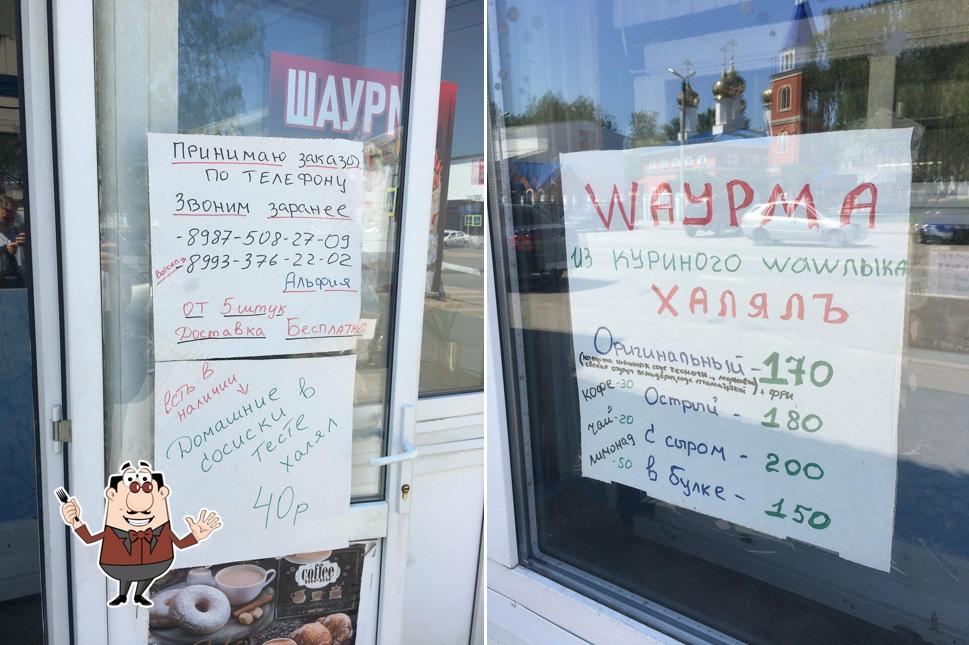 ШАУРМ
ПРИНИМАЮ ЗАКАЗЫ
ПО ТЕЛЕФОНУ
ЗВОНИМ ЗАРАНЕЕ
-8987-508-27-09
-8993-376-22-02
Альфия
ОТ 5 штук
Доставка Бесплатно
есть в
наличии
Домашние в
сосиски в
тесте
халял
40р
coffee
ШАУРМА
ИЗ КУРИНОГО ШАШЛЫКА
ХАЛЯЛЪ
Оригинальный - 170
+ фри
кофе -30
Острый - 180
чай -20
с сыром - 200
лимонад -50
в булке - 150